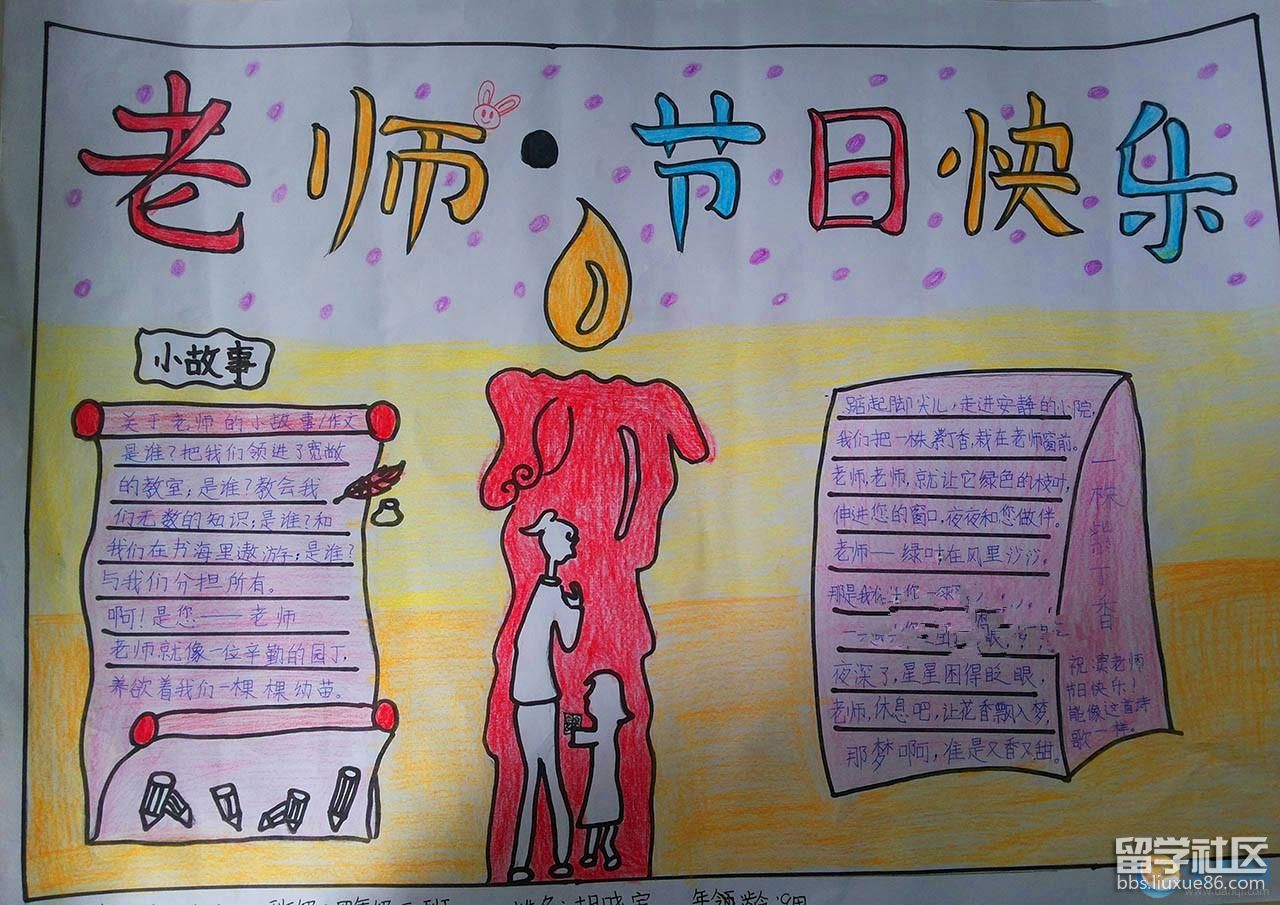 老师·节日快乐
小故事
关于老师的小故事/作文
是谁?把我们领进了宽敞
的教室;是谁?教会我
们无数的知识;是谁?和
我们在书海里遨游;是谁?
与我们分担所有。
啊!是您——老师
老师就像一位辛勤的园丁,
养欲着我们一棵棵幼苗。
踮起脚尖儿,走进安静的小院,
我们把一株紫丁香,栽在老师窗前。
老师,老师,就让它绿色的枝叶,
伸进您的窗口,夜夜和您做伴。
老师——绿叶在风里沙沙,
那是我们
夜深了,星星困得眨眼,
老师,休息吧,让花香飘入梦,
那梦啊,准是又香又甜。
一株紫丁香
祝:老师
节日快乐!
能像这首诗
歌一样。
留学社区
bbs.liuxue86.com